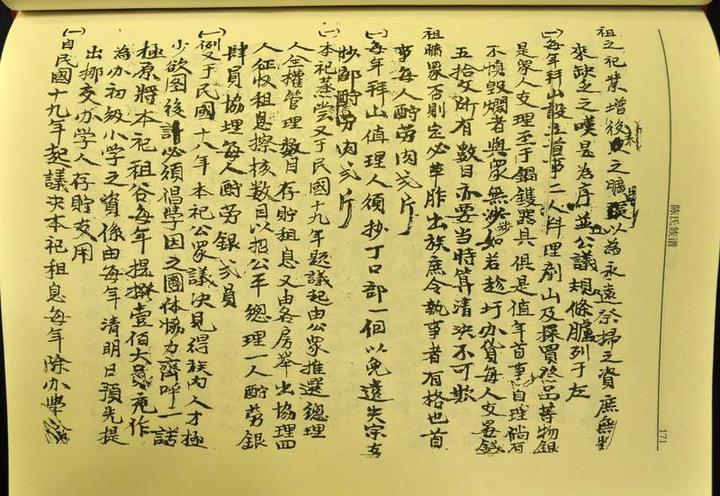 祖之祀業增後人之曠張以為永遠祭掃之資庶無坐
來缺乏之嘆是為序並公議規條臚列于左
㈠每年拜山設立首事二人料理剷山及採買祭品等物銀
是眾人支理至于鍋鑊器具俱是值年首事自理倘有
不慎毀爛者與眾無涉如若趁圩办貨每人支工錢
五拾文所有數目亦要当時算清決不可欺
祖瞞眾否則定必革胙出族庶令執事者有格也首
事每人酧劳肉弍斤
㈠每年拜山值理人須抄丁口部一個以免遺失宗支
抄部酧劳肉弍斤
㈠本祀蒸嘗又于民國十九年題議起由公眾推選總理
人全權管理數目存貯租息又由各房舉出協理四
人征收租息擦核數目以招公平總理一人酧劳銀
肆員協理每人酧劳銀弍員
㈠例又于民國十八年本祀公眾議決見得族內人才極
少欲图後計必須倡學因之團体協力齊呼一話
極原將本祀祖谷每年提撥壹佰大員充作
為办初級小学之資係由每年清明日預先提
出挪交办学人存貯支用
㈠自民國十九年起議決本祀租息每年除办學
陈氏族谱
171